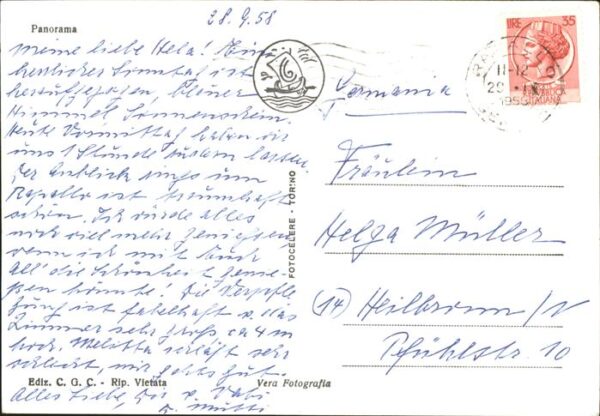 28.9.58
Panorama
Meine liebe Hela! Ein
herrlicher Sonntag ist
heraufgezogen, blauer
Himmel, Sonnenschein.
Heute Vormittag haben wir
uns 1 Stunde rudern lassen.
Der Anblick rings um
Rapallo ist traumhaft
schön. Ich würde alles
noch viel mehr genießen
wenn ich mit Euch
all' die Schönheit genie-
ßen könnte! Die Verpfle-
gung ist fabelhaft u. das
Zimmer sehr groß ca 4 m
hoch. Melitta schläft sehr
schlecht, mir geht's gut.
Alles Liebe, Dir u. Vati
v. Mutti
Ediz. C. G. C. - Rip. Vietata
Vera Fotografia
FOTOCELERE - TORINO
LIRE 35
11-12
ITALIANA
Germania
Fräulein
Helga Müller
(14) Heilbronn/N
Pfühlstr. 10